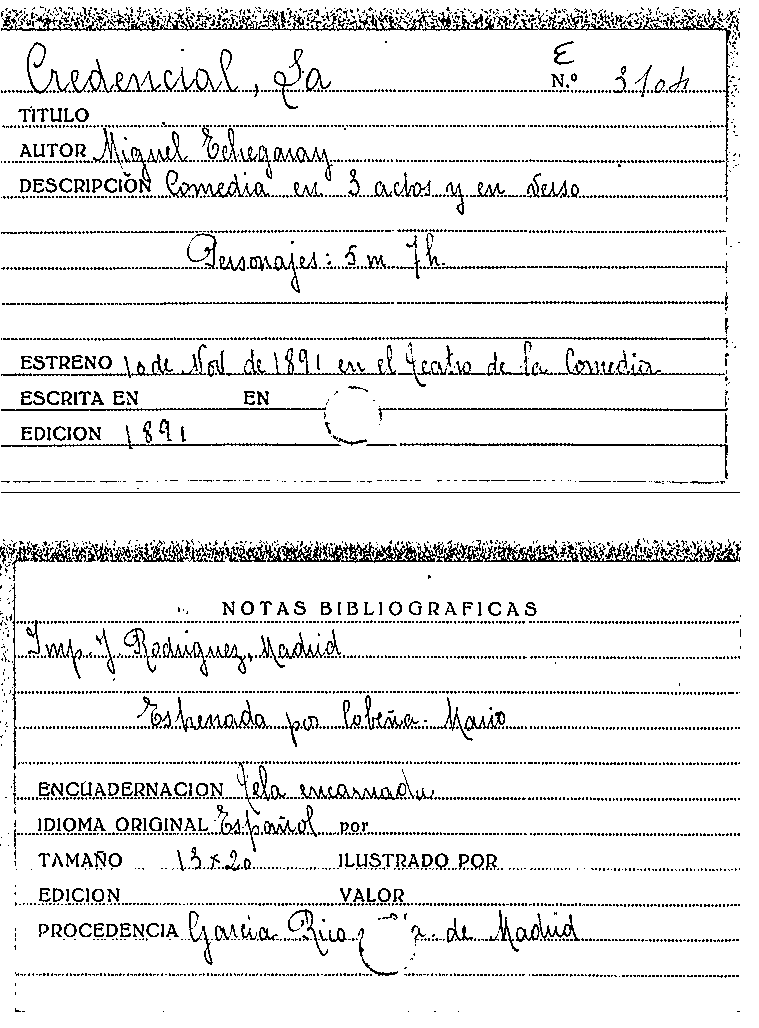 E
Credencial, La N.º 3104
TÍTULO
AUTOR Miguel Echegaray
DESCRIPCIÓN Comedia en 3 actos y en verso
Personajes: 5 m 7 h.
ESTRENO 10 de Nov. de 1891 en el Teatro de la Comedia
ESCRITA EN EN
EDICION 1891
NOTAS BIBLIOGRAFICAS
Imp. J Rodriguez, Madrid
Estrenada por Cobeña - Mario
ENCUADERNACION Tela encarnada
IDIOMA ORIGINAL Español por
TAMAÑO 13 x 20 ILUSTRADO POR
EDICION VALOR
PROCEDENCIA Garcia Rico, de Madrid